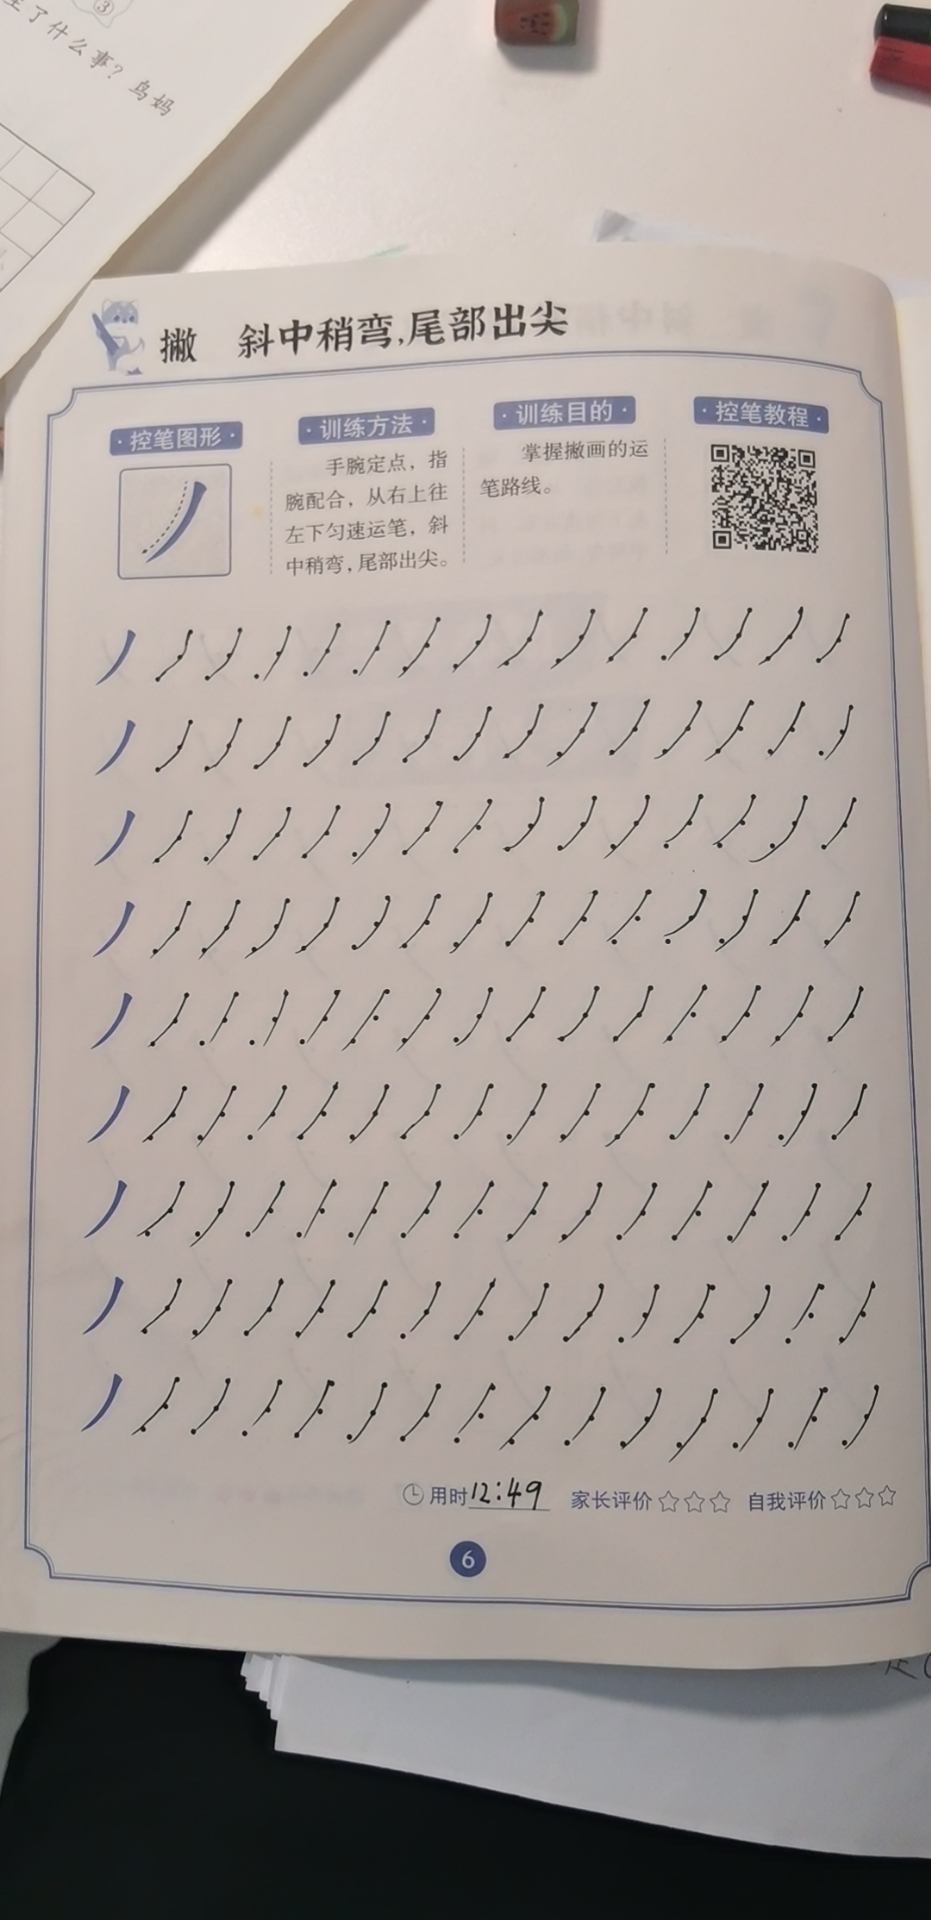 了什么事？鸟妈
③
撇 斜中稍弯,尾部出尖
·控笔图形·
·训练方法·
手腕定点，指
腕配合，从右上往
左下匀速运笔，斜
中稍弯，尾部出尖。
·训练目的·
掌握撇画的运
笔路线。
·控笔教程·
用时12:49 家长评价☆☆☆ 自我评价☆☆☆
6